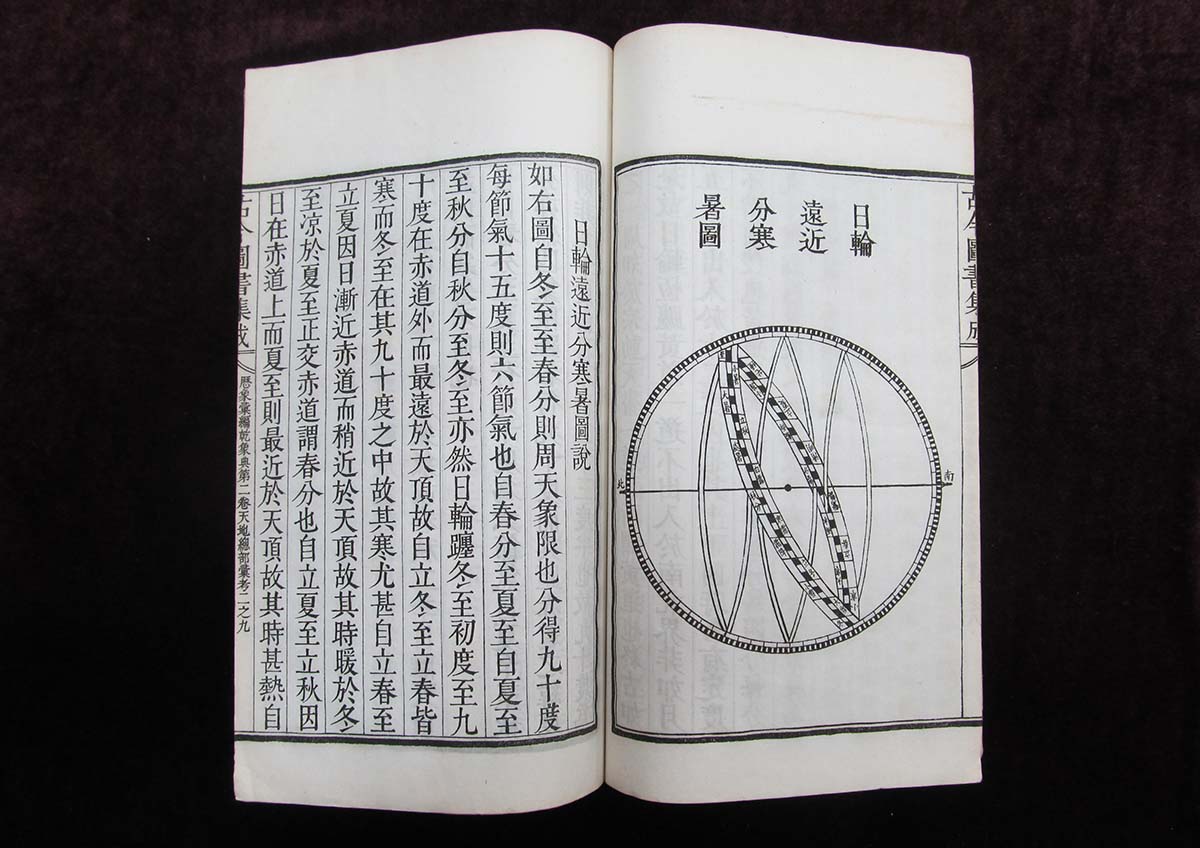 日輪
遠近
分寒
暑圖
南
北
古今圖書集成
日輪遠近分寒暑圖說
如右圖自冬至至春分則周天象限也分得九十度
每節氣十五度則六節氣也自春分至夏至自夏至
至秋分自秋分至冬至亦然日輪躔冬至初度至九
十度在赤道外而最遠於天頂故自立冬至立春皆
寒而冬至在其九十度之中故其寒尤甚自立春至
立夏因日漸近赤道而稍近於天頂故其時暖於冬
至凉於夏至正交赤道謂春分也自立夏至立秋因
日在赤道上而夏至則最近於天頂故其時甚熱自
古今圖書集成
曆象彙編乾象典第二卷天地總部彙考二之九